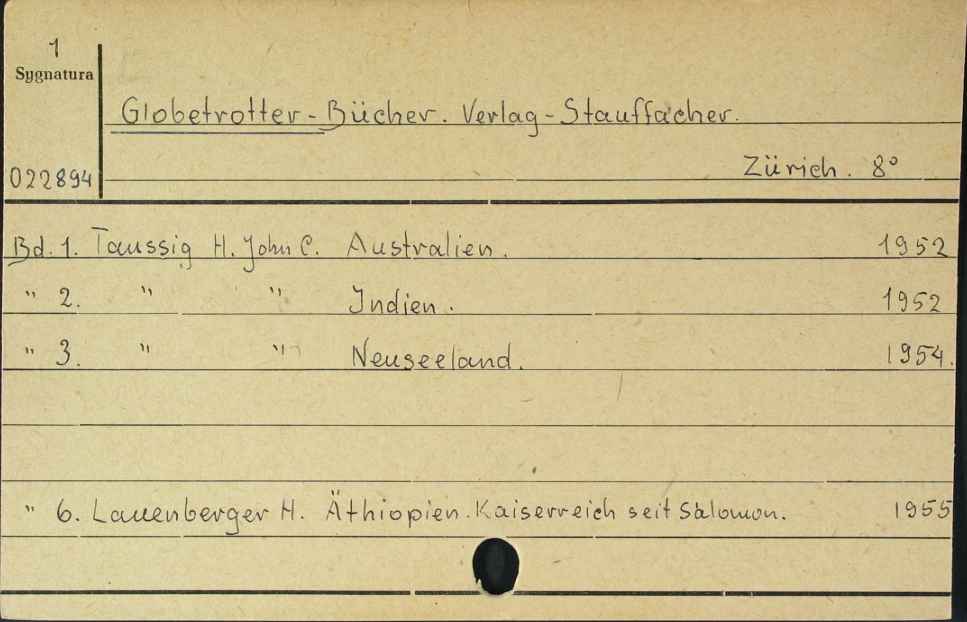 1
Sygnatura
Globetrotter-Bücher. Verlag-Stauffacher.
Zürich. 8°
022894
Bd. 1. Taussig H. John C. Australien. 1952
" 2. " " Indien. 1952
" 3. " " Neuseeland. 1954.
" 6. Lauenberger H. Äthiopien. Kaiserreich seit Salomon. 1955